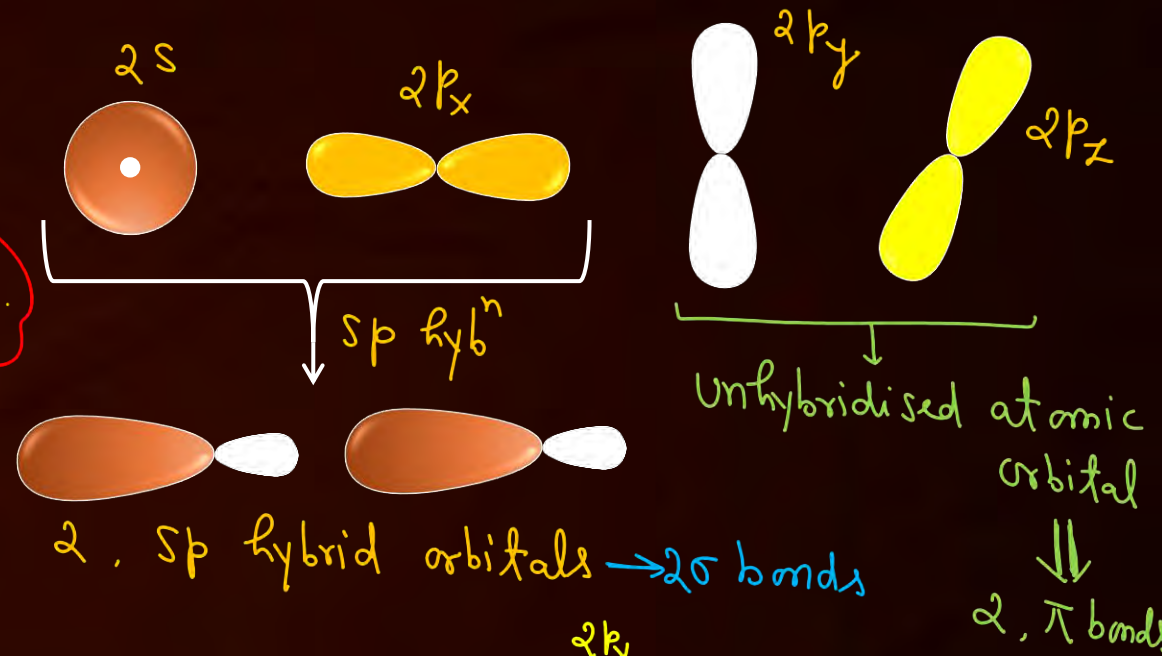 2s
2px
2py
2pz
sp hybⁿ
Unhybridised atomic
orbital
2, sp hybrid orbitals → 2σ bonds
2, π bonds
2py